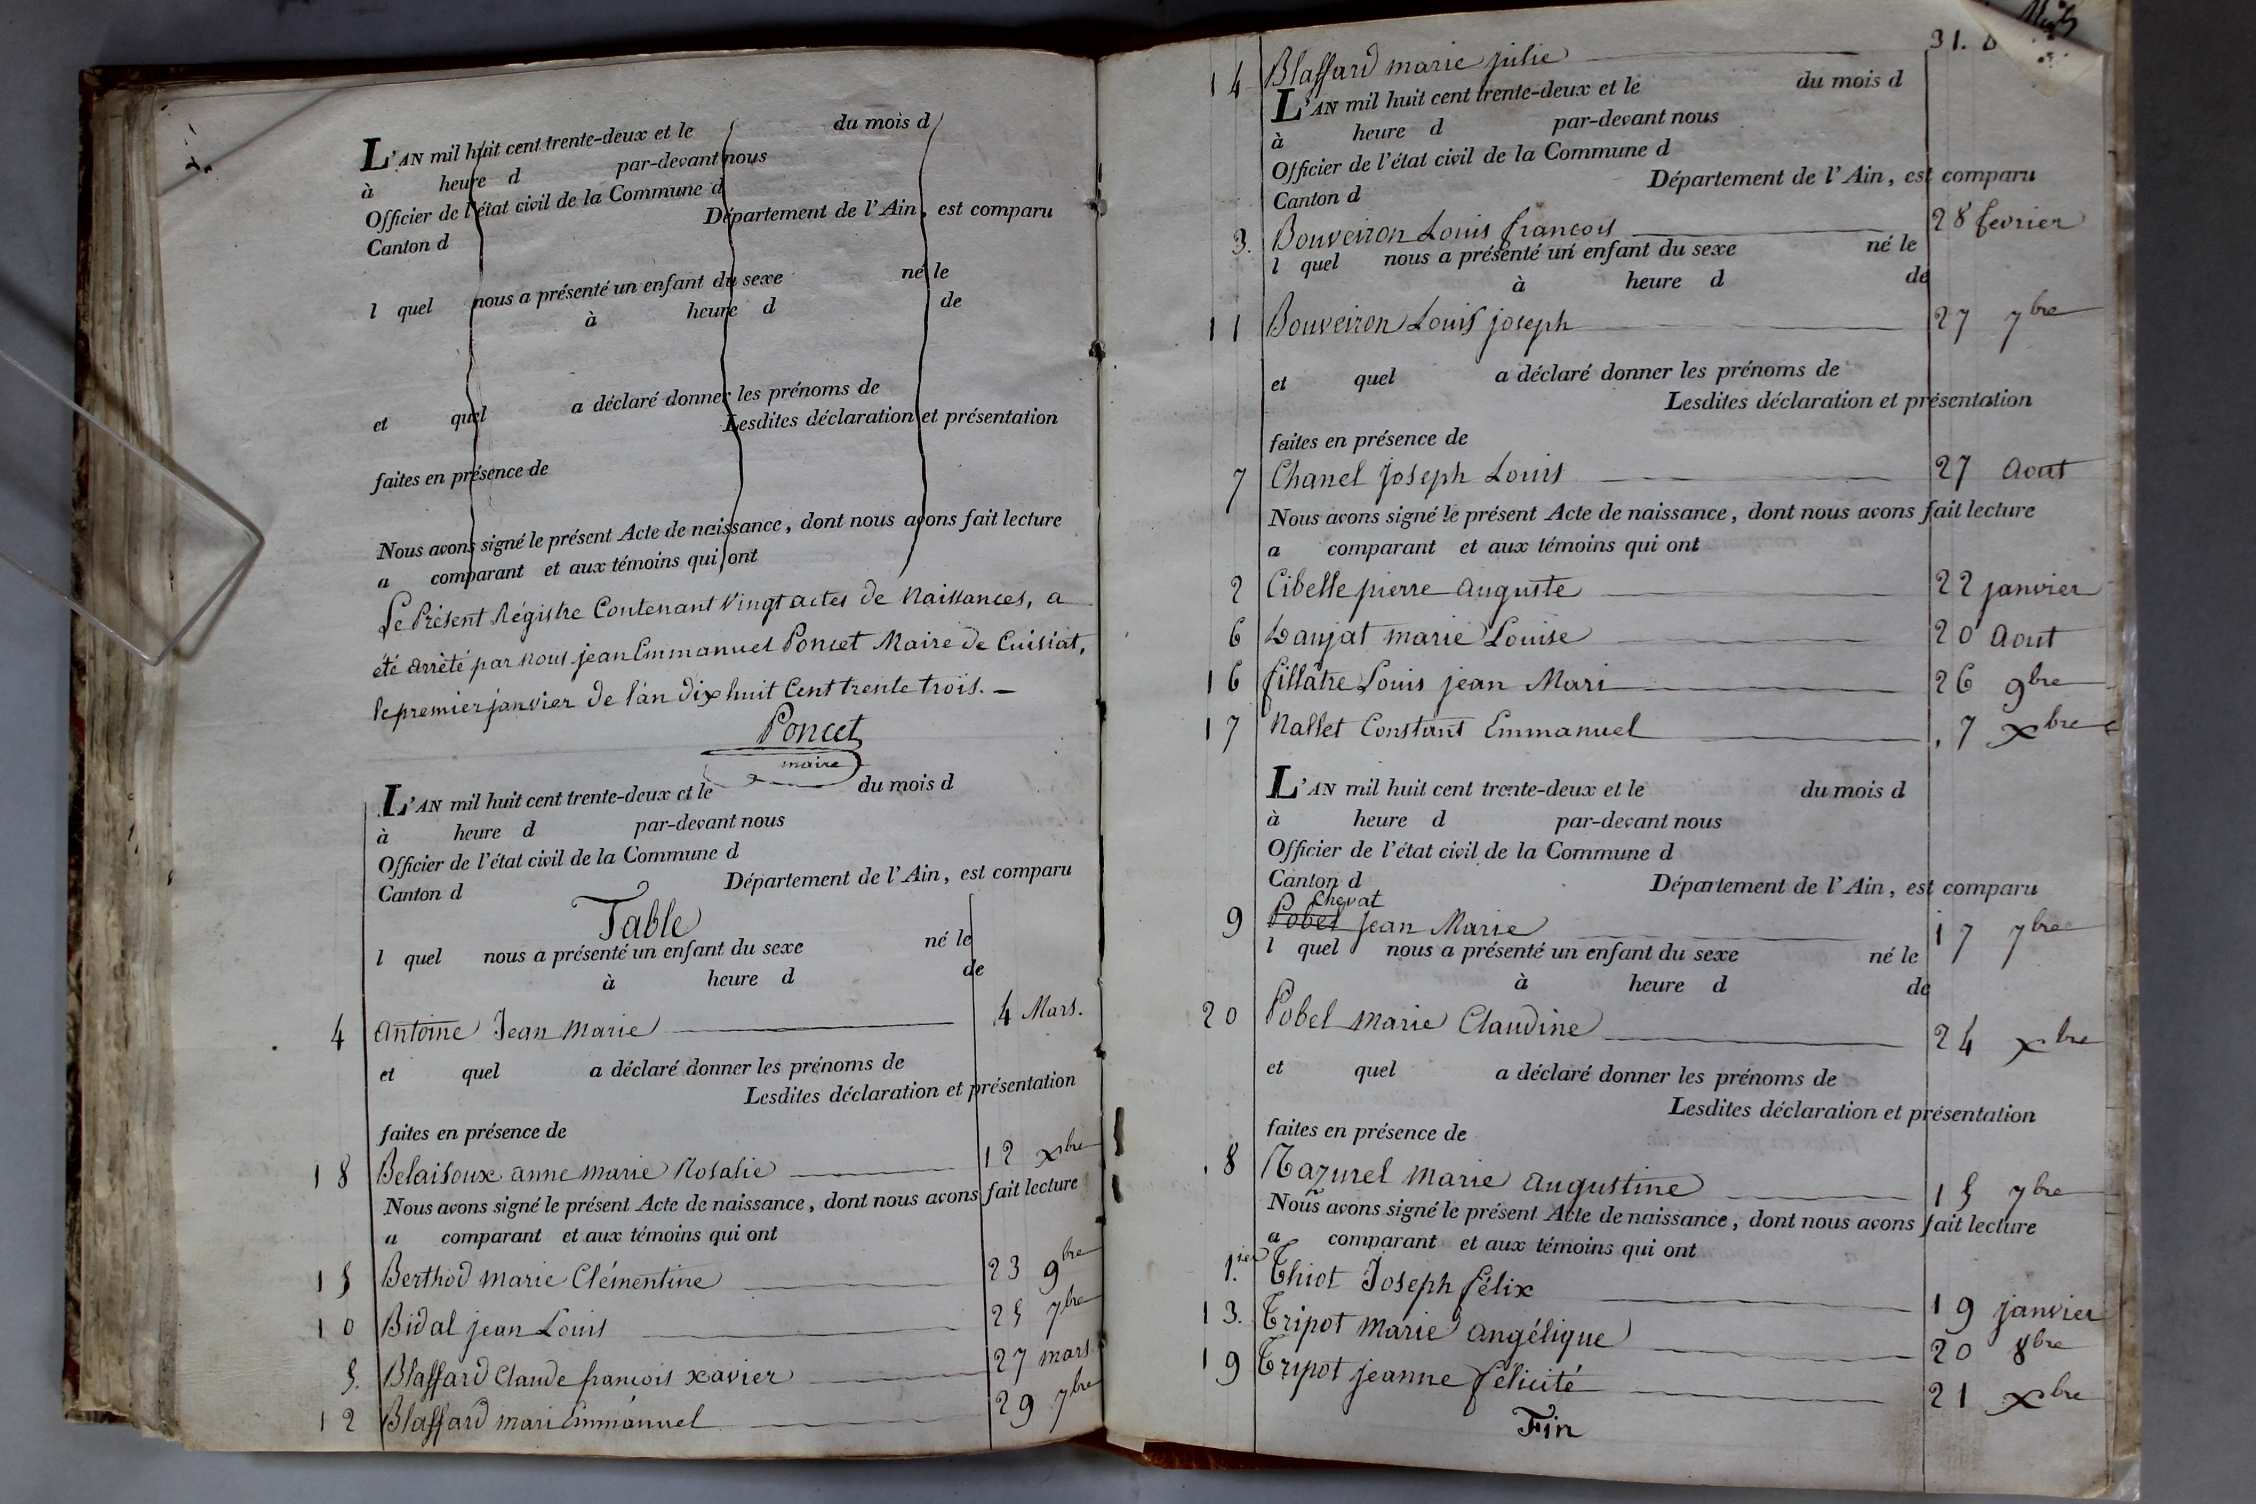 L'AN mil huit cent trente-deux et le du mois d
à heure d par-devant nous
Officier de l'état civil de la Commune d
Canton d Département de l'Ain, est comparu
l quel nous a présenté un enfant du sexe né le
à heure d de
et quel a déclaré donner les prénoms de
Lesdites déclaration et présentation
faites en présence de
Nous avons signé le présent Acte de naissance, dont nous avons fait lecture
a comparant et aux témoins qui ont
Le Présent Régistre Contenant Vingt actes de Naissances, a
été arrêté par nous jean Emmanuel Poncet Maire de Cuisiat,
le premier janvier de l'an dix huit Cent trente trois. —
Poncet
maire
L'AN mil huit cent trente-deux et le du mois d
à heure d par-devant nous
Officier de l'état civil de la Commune d
Canton d Département de l'Ain, est comparu
Table
l quel nous a présenté un enfant du sexe né le
à heure d de
4 antoine Jean Marie 4 Mars.
et quel a déclaré donner les prénoms de
Lesdites déclaration et présentation
faites en présence de
18 Belaisoux anne marie Rosalie 12 xbre
Nous avons signé le présent Acte de naissance, dont nous avons fait lecture
a comparant et aux témoins qui ont
15 Berthod marie Clémentine 23 9bre
10 Bidal jean Louis 25 7bre
5. Blaffard Claude francois xavier 27 mars
12 Blaffard mari Emmanuel 29 7bre
14 Blaffard marie julie 31.
L'AN mil huit cent trente-deux et le du mois d
à heure d par-devant nous
Officier de l'état civil de la Commune d
Canton d Département de l'Ain, est comparu
3. Bouveiron Louis francois 28 fevrier
l quel nous a présenté un enfant du sexe né le
à heure d de
11 Bouveiron Louis joseph 27 7bre
et quel a déclaré donner les prénoms de
Lesdites déclaration et présentation
faites en présence de
7 Chanel Joseph Louis 27 Aout
Nous avons signé le présent Acte de naissance, dont nous avons fait lecture
a comparant et aux témoins qui ont
2 Cibelle pierre auguste 22 janvier
6 Daujat marie Louise 20 Aout
16 fillâtre Louis jean Mari 26 9bre
17 Nallet Constant Emmanuel 7 xbre
L'AN mil huit cent trente-deux et le du mois d
à heure d par-devant nous
Officier de l'état civil de la Commune d
Canton d Département de l'Ain, est comparu
Chevat
9 Pobel Jean Marie 17 7bre
l quel nous a présenté un enfant du sexe né le
à heure d de
20 Pobel Marie Claudine 24 xbre
et quel a déclaré donner les prénoms de
Lesdites déclaration et présentation
faites en présence de
8 Razurel Marie augustine 15 7bre
Nous avons signé le présent Acte de naissance, dont nous avons fait lecture
a comparant et aux témoins qui ont
1.ier Thiot Joseph félix 19 janvier
13. Tripot Marie angélique 20 8bre
19 Tripot jeanne félicité 21 xbre
Fin